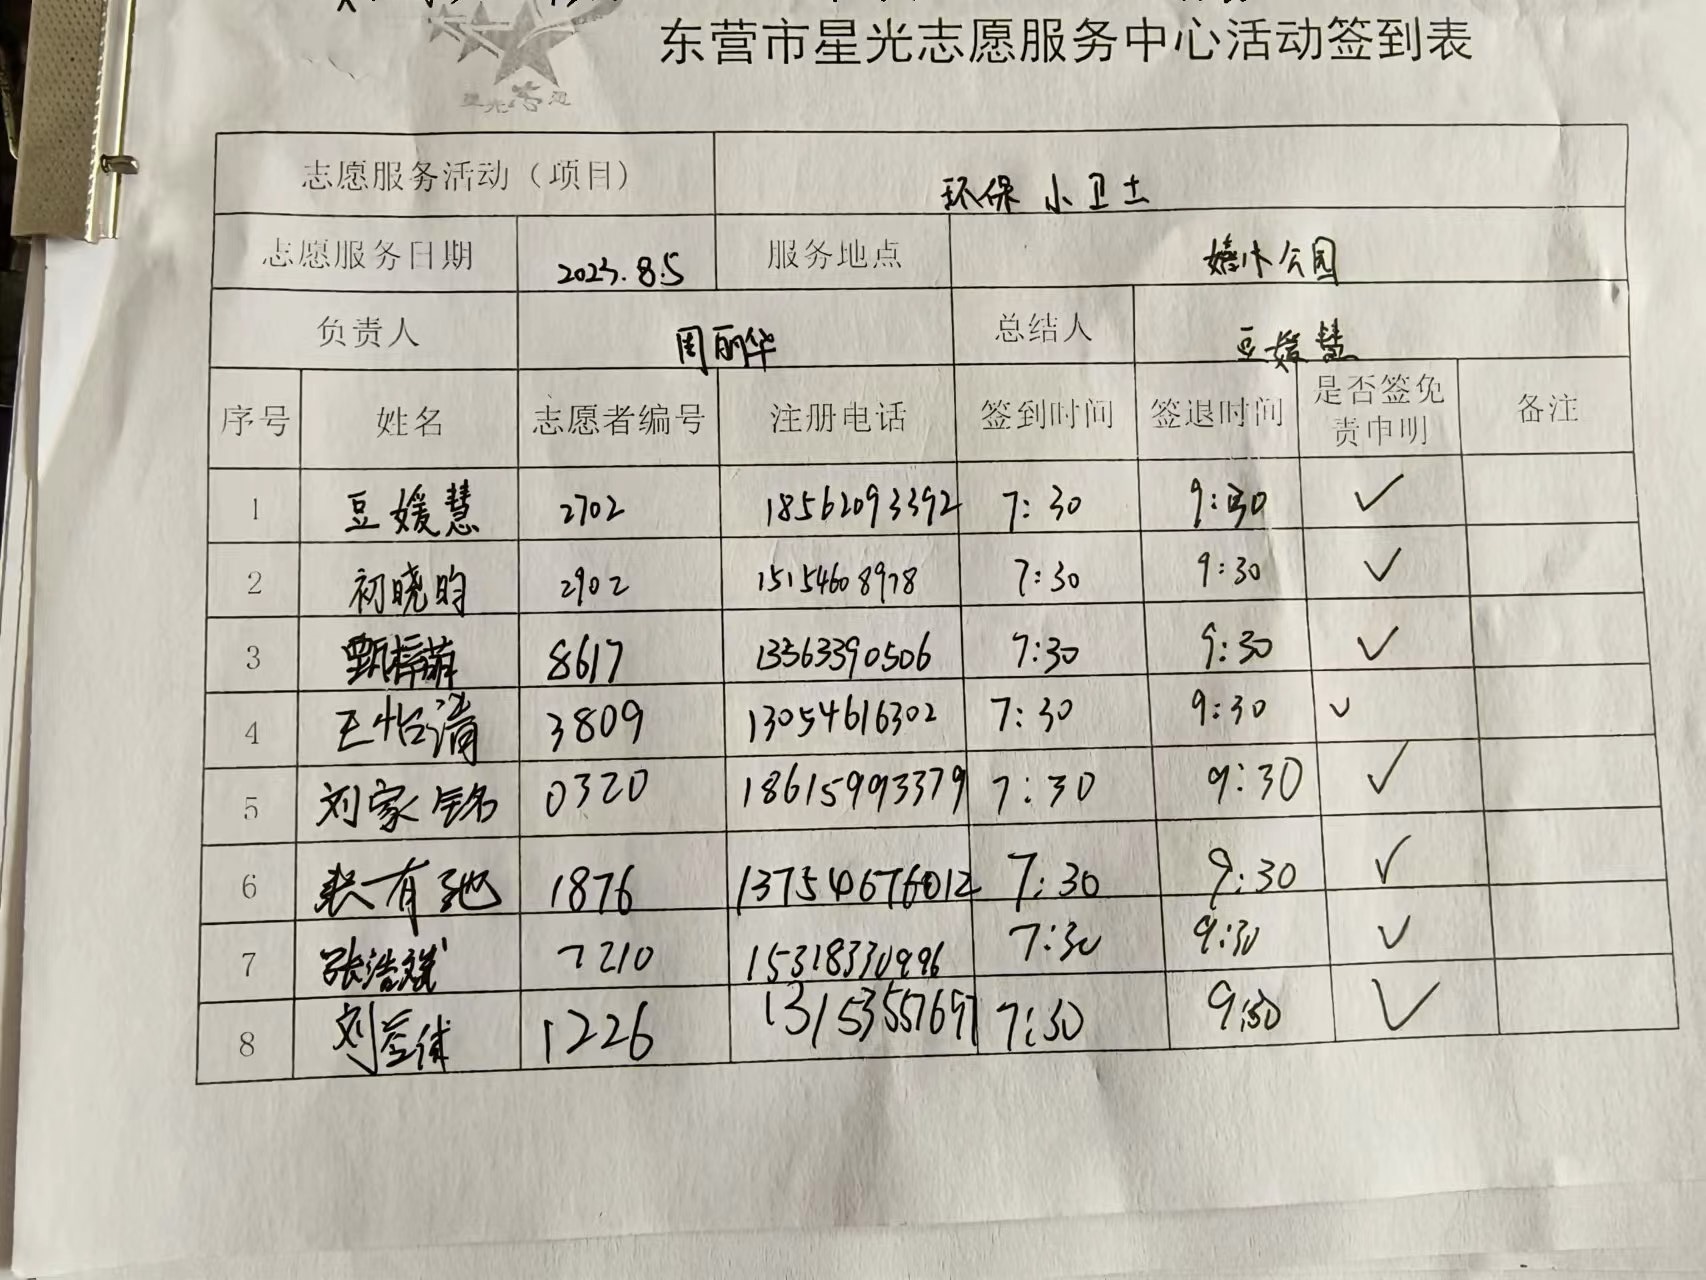 东营市星光志愿服务中心活动签到表
星光志愿
志愿服务活动（项目） 环保小卫士
志愿服务日期 2023.8.5 服务地点 嬉水公园
负责人 周丽华 总结人 豆媛慧
序号 姓名 志愿者编号 注册电话 签到时间 签退时间 是否签免责申明 备注
1 豆媛慧 2702 18562093392 7:30 9:30 ✓
2 初晓昀 2902 15154608978 7:30 9:30 ✓
3 甄梓萌 8617 13563390506 7:30 9:30 ✓
4 王怡清 3809 13054616302 7:30 9:30 ✓
5 刘家铭 0320 18615993379 7:30 9:30 ✓
6 1876 7:30 9:30 ✓
7 张浩斌 7210 15318330996 7:30 9:30 ✓
8 1226 7:30 9:30 ✓